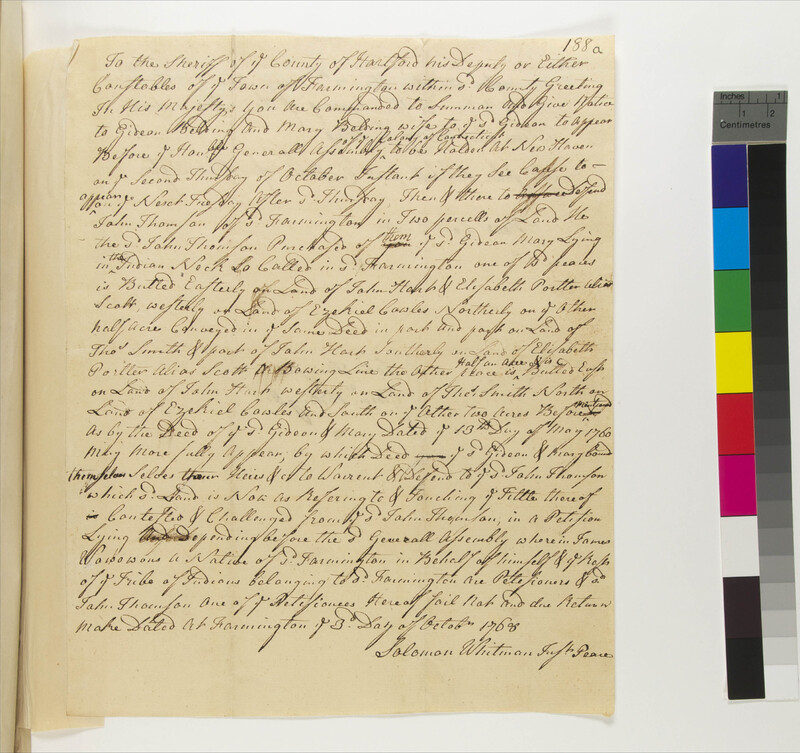 188a
To the Sheriff of ye County of Hartford his Deputy or Either
Constables of ye Town of Farmington within sd County Greeting
In His Majestys you are Commanded to Summon and Give Notice
to Gideon Belding and Mary Belding wife to ye sd Gideon to Appear
of ye Colony of Connecticut
Before ye Honble Generall Assembly to be Holden At New Haven
on ye Second Thursday of October Instant if they See Cause to
appear on ye Next Tuesday After sd Thursday Then & there to defend
John Thomson of sd Farmington in Two percells of Land He
the sd John Thomson Purchased of them ye sd Gideon Mary Lying
in the Indian Neck So Called in sd Farmington one of sd peaces
is Butted Easterly on Land of John Hart & Elisabeth Portter Alias
Scott, westerly on Land of Ezekiel Cowles Northerly on ye Other
half Acre Conveyed in ye Same Deed in part and part on Land of
Thos Smith & part of John Hart Southerly on Land of Elisabeth
Portter Alias Scott A Bowing Line the Other Half an Acre & is Peace is Butted East
on Land of John Hart westerly on Land of Thos Smith North on
Land of Ezekiel Cowles and South on ye Other two Acres Before
As by the Deed of ye sd Gideon & Mary Dated ye 13th Day of May 1760
May More fully Appear; by which Deed ye sd Gideon & Mary bound
themselves Selves their Heirs &c to Warrent & Defend to ye sd John Thomson
which sd Land is Now as Refering to & Touching ye Tittle thereof
is Contested & Challenged from ye sd John Thomson, in a Petision
Lying Depending before the sd Generall Assembly wherein James
Wowowous a Native of sd Farmington in Behalf of himself & ye Rest
of ye Tribe of Indians belonging to sd Farmington are Petesioners & sd
John Thomson One of ye Petesionees Hereof fail Not and due Return
Make Dated At Farmington ye 3d Day of Octobr 1768
Solomon Whitman Just Peace